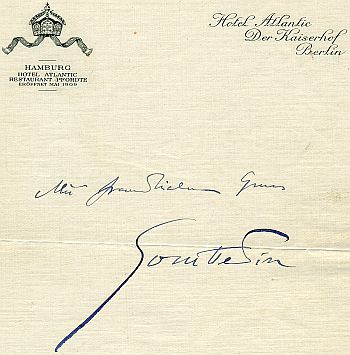 Hotel Atlantic
Der Kaiserhof
Berlin
HAMBURG
HOTEL ATLANTIC
RESTAURANT PFORDTE
ERÖFFNET MAI 1909
Mit freundlichem Gruss